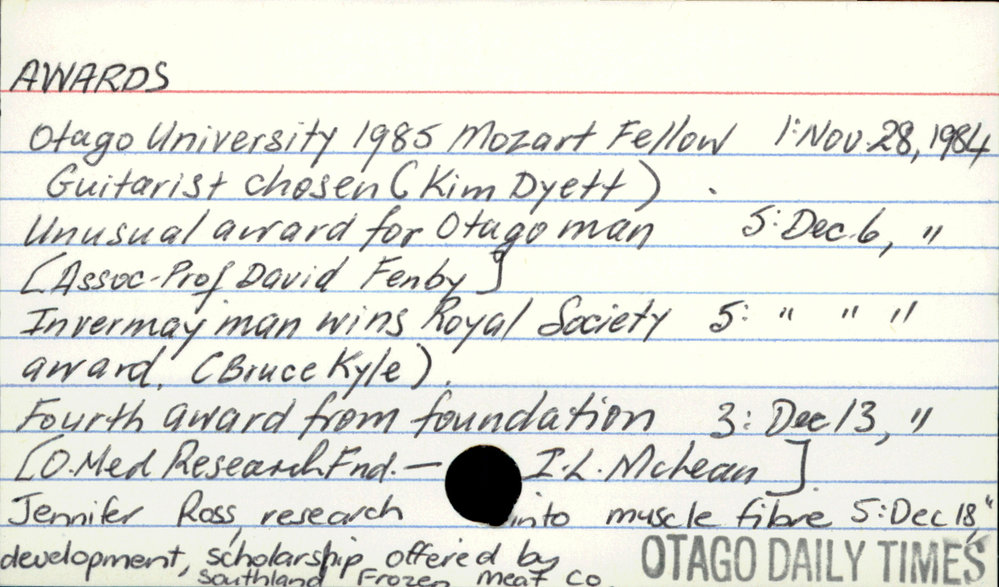 AWARDS
Otago University 1985 Mozart Fellow 1: Nov. 28, 1984
Guitarist chosen (Kim Dyett).
Unusual award for Otago man 5: Dec. 6, "
[Assoc-Prof David Fenby]
Invermay man wins Royal Society 5: " " "
award. (Bruce Kyle).
Fourth award from foundation 3: Dec 13, "
[O. Med Research Fnd. — I. L. McLean].
Jennifer Ross, research into muscle fibre 5: Dec 18, "
development, scholarship offered by
Southland Frozen meat co.
OTAGO DAILY TIMES